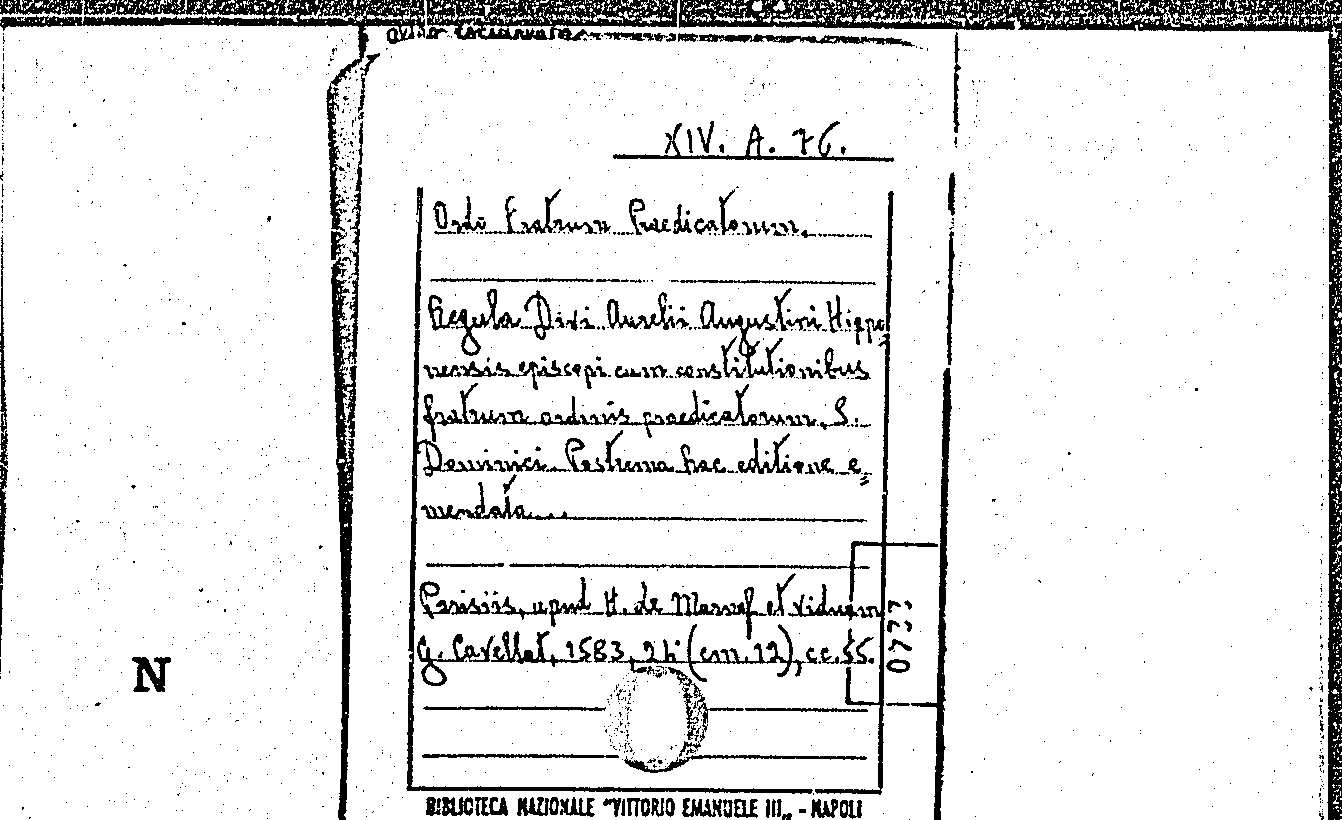 XIV. A. 76.
Ordo Fratrum Praedicatorum.
Regula Divi Aurelii Augustini Hippo=
nensis episcopi cum constitutionibus
fratrum ordinis praedicatorum. S.
Dominici. Postrema hac editione e=
mendata...
Parisiis, apud H. de Marnef et viduam
G. Cavellat, 1583, 24° (cm. 12), cc. 55.
0777
N
BIBLIOTECA NAZIONALE "VITTORIO EMANUELE III„ - NAPOLI